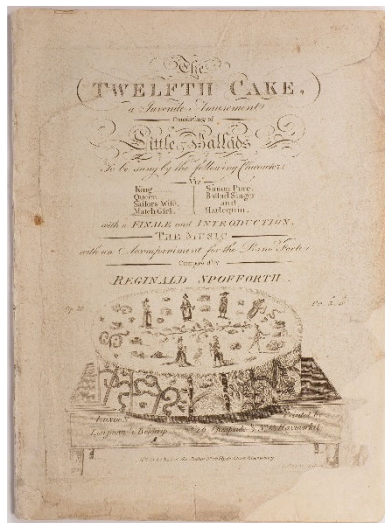 The
(TWELFTH CAKE,)
a Juvenile Amusement
Consisting of
Little Ballads
To be sung by the following Characters
Viz
King
Queen
Sailors Wife
Match Girl
Simon Pure
Ballad Singer
and
Harlequin
with a FINALE and INTRODUCTION,
THE MUSIC
with an Accompaniment for the Piano Forte
Composed by
REGINALD SPOFFORTH
Printed by
Longman & Broderip No 26 Cheapside & No 13 Haymarket